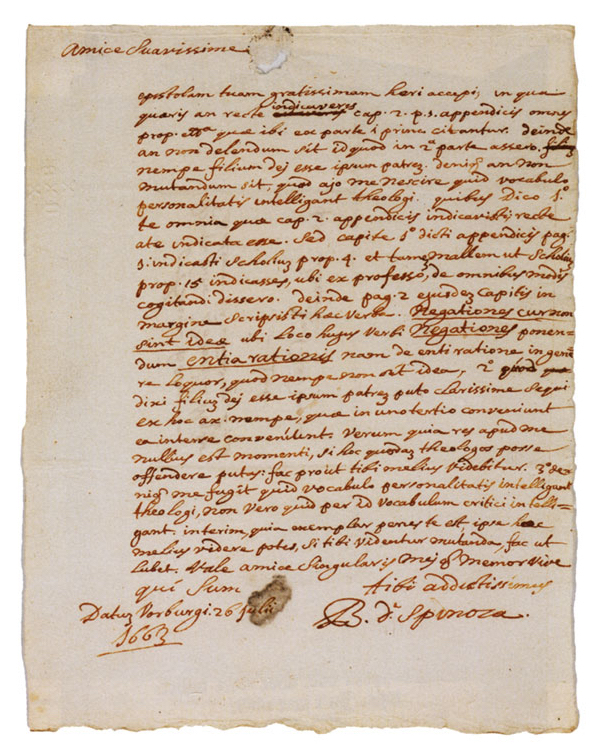 Amice Suavissime
epistolam tuam gratissimam heri accepi, in qua
quæris an recte indicaveris cap. 2. p. 1. appendicis omnes
prop. quæ ibi ex parte 1 princ. citantur. deinde
an non delendum sit id quod in 2ᵃ parte assero,
nempe filium dej esse ipsum patrẽ. deniq̃ an non
mutandum sit, quod ajo me nescire quid vocabulo
personalitatis intelligant theologi. quibus Dico 1º.
te omnia quæ cap. 2. appendicis indicavisti recte
a te indicata esse. Sed capite 1º dicti appendicis pag.
1. indicasti Scholiuʒ prop. 4. et tameʒ mallem ut Scholiuʒ
prop. 15 indicasses, ubi ex professo, de omnibus modis
cogitandi dissero. deinde pag. 2 ejusdeʒ capitis in
margine Scripsisti hæc verba. Negationes cur non
sint ideæ ubi loco hujus verbi Negationes ponen=
dum entia rationis nam de enti ratione in gene
re loquor, quod nempe non sit idea, 2º quod
dixi filiuʒ dej esse ipsum patreʒ puto clarissime sequi
ex hoc ax. nempe, quæ in uno tertio conveniunt
ea inter se conveniunt. Verum quia res apud me
nullius est momenti, si hoc quosdaʒ theologos posse
offendere putes: fac prout tibi melius videbitur. 3º de
niq̃ me fugit quid vocabulo personalitatis intelligant
theologi, non vero quid per id vocabulum critici intelli=
gant. interim, quia exemplar penes te est ipse hæc
melius videre potes, si tibi videntur mutanda, fac ut
lubet. Vale amice Singularis mej q̃ memor vive
qui Sum tibi addictissimus
Datuʒ Vorburgi. 26 julii B. dᵉ Spinoza.
1663